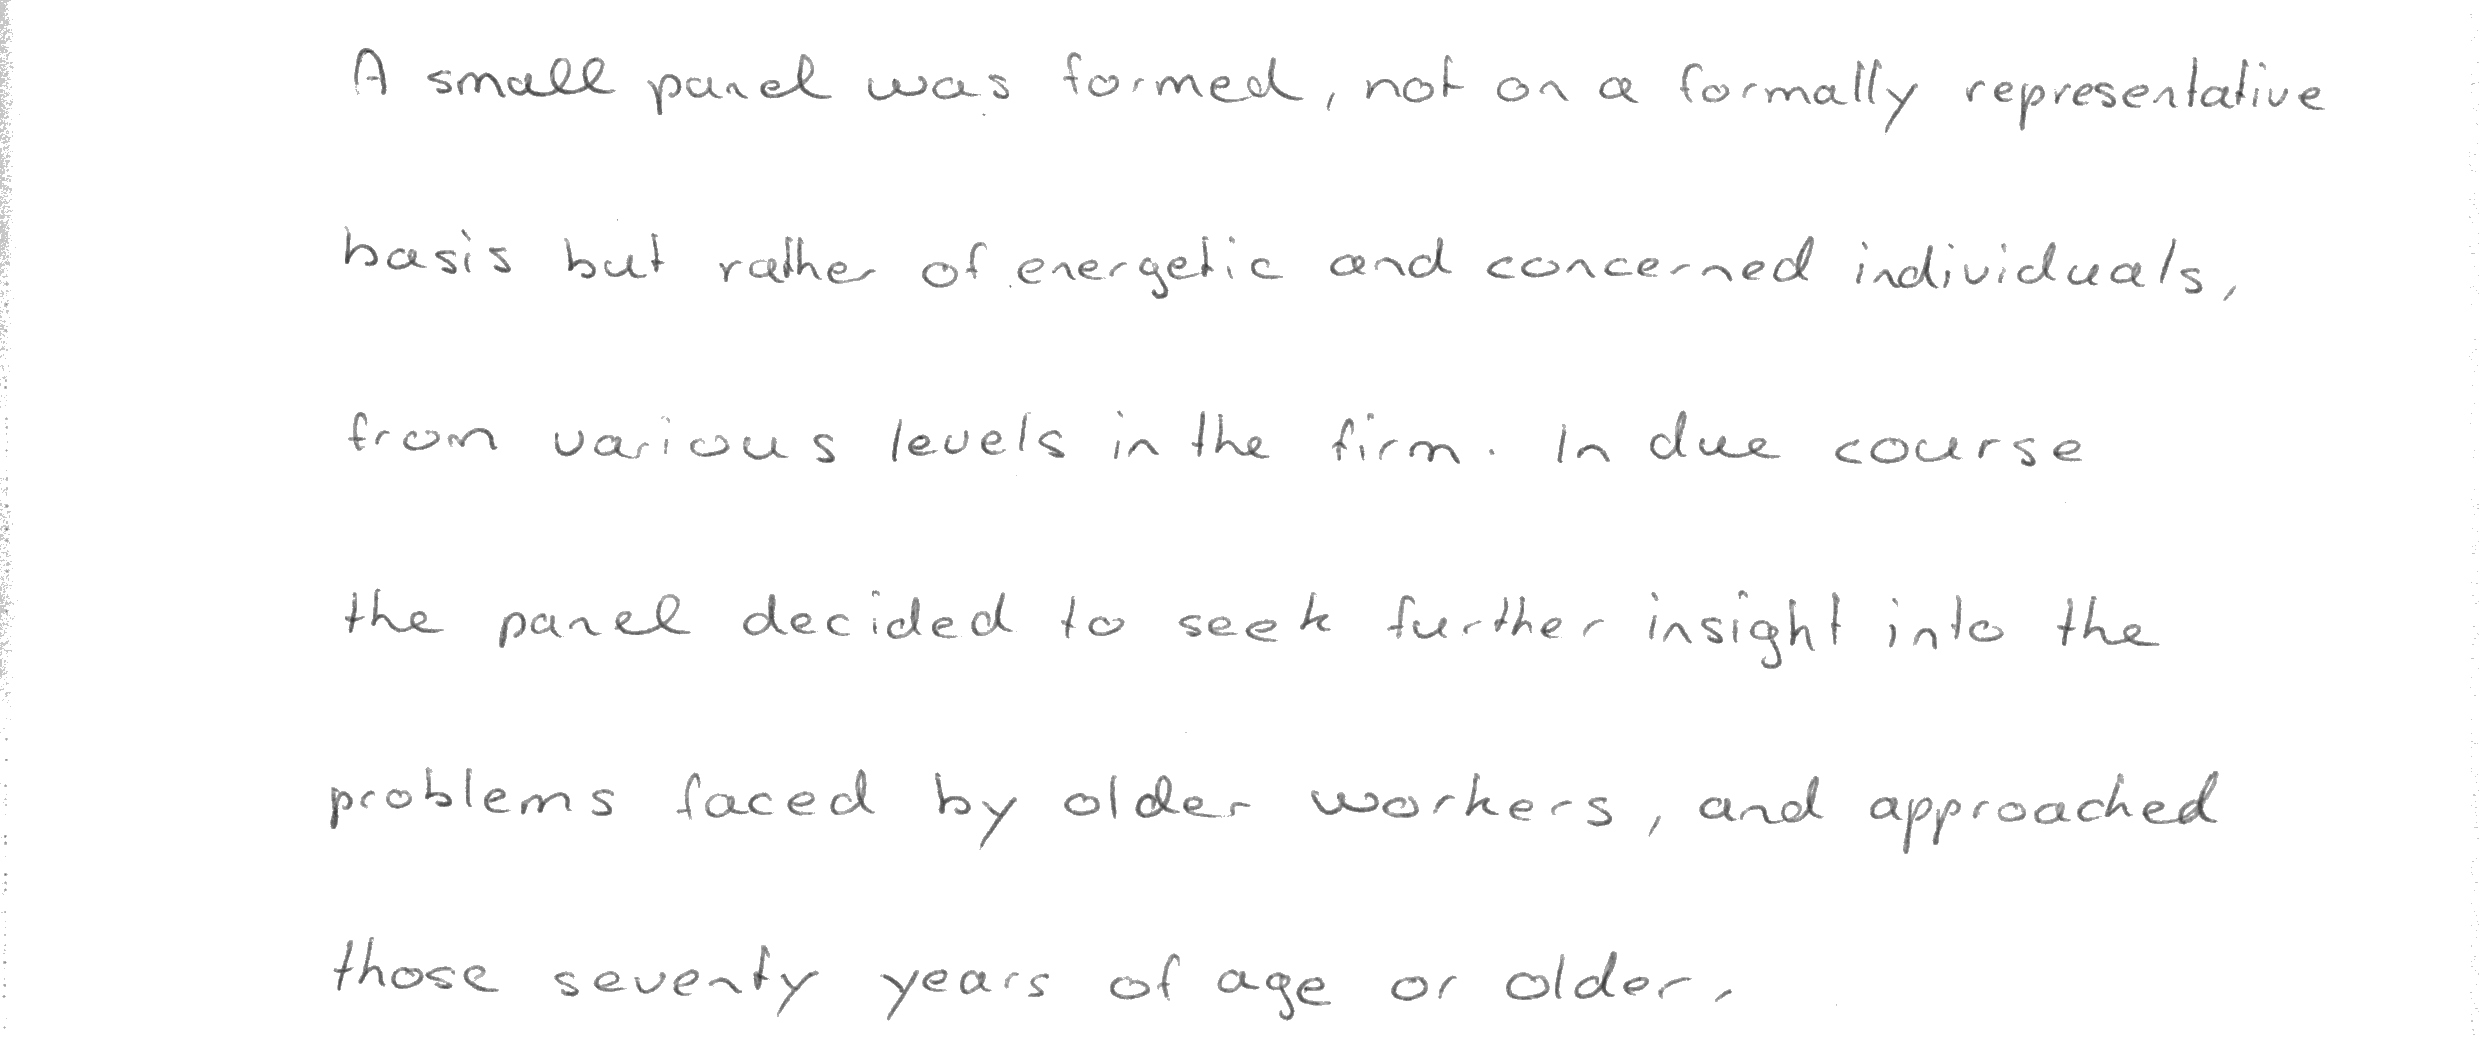 A small panel was formed, not on a formally representative
basis but rather of energetic and concerned individuals,
from various levels in the firm. In due course
the panel decided to seek further insight into the
problems faced by older workers, and approached
those seventy years of age or older.